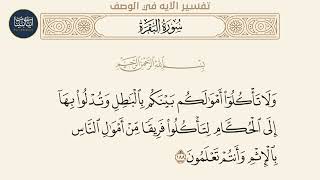 تفسير الآيه في الوصف
سُورَةُ البَقَرَةِ
بِسْمِ اللَّهِ الرَّحْمَٰنِ الرَّحِيمِ
وَلَا تَأْكُلُوٓا۟ أَمْوَٰلَكُم بَيْنَكُم بِٱلْبَٰطِلِ وَتُدْلُوا۟ بِهَآ
إِلَى ٱلْحُكَّامِ لِتَأْكُلُوا۟ فَرِيقًا مِّنْ أَمْوَٰلِ ٱلنَّاسِ
بِٱلْإِثْمِ وَأَنتُمْ تَعْلَمُونَ ١٨٨